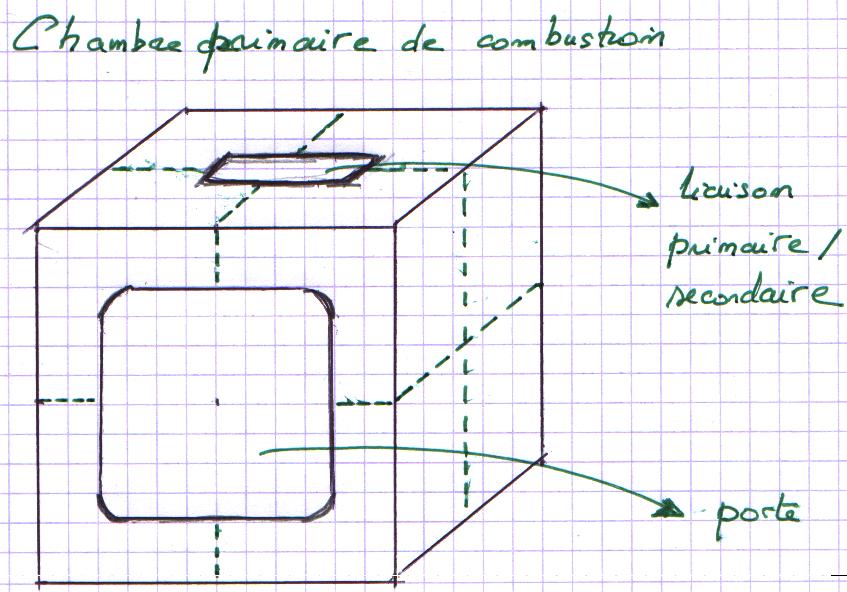 Chambre primaire de combustion
liaison
primaire /
secondaire
porte